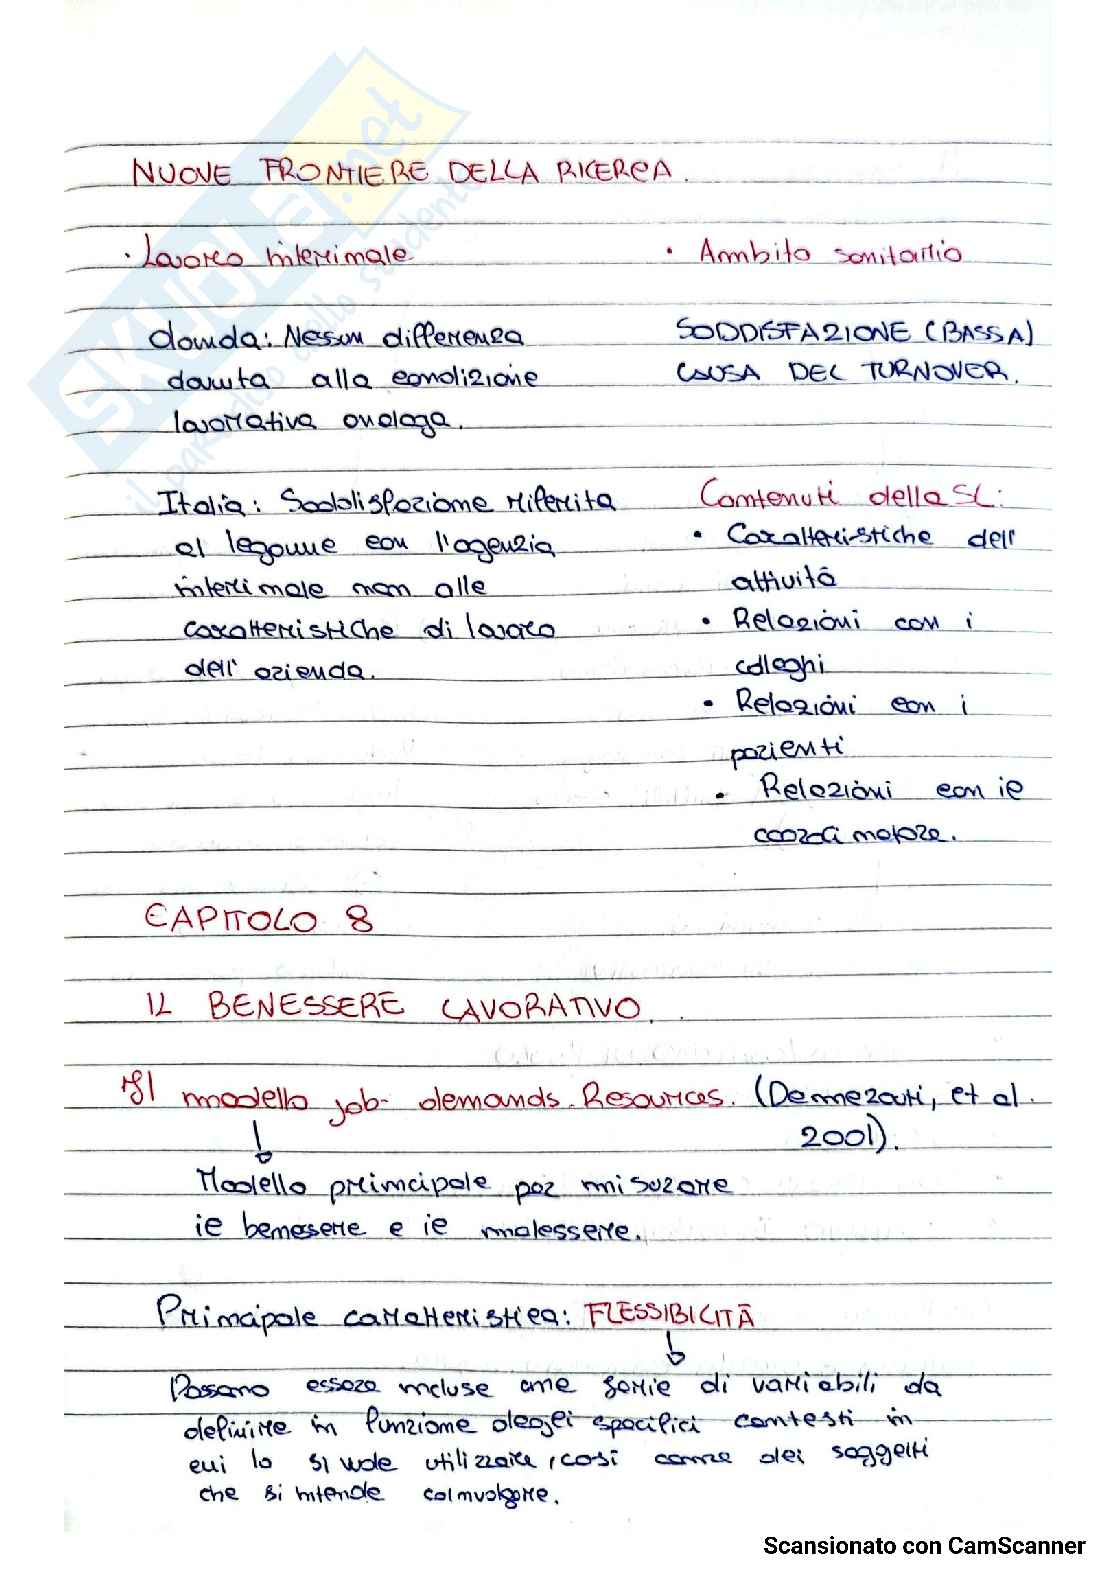 NUOVE FRONTIERE DELLA RICERCA.
• Lavoro interimale
Olanda: Nessun differenza
dovuta alla condizione
lavorativa analoga.
Italia: Soddisfazione riferita
al legame con l'agenzia
interimale non alle
caratteristiche di lavoro
dell' azienda.
• Ambito sanitario
SODDISFAZIONE (BASSA)
CAUSA DEL TURNOVER.
Contenuti della SL:
• Caratteristiche dell'
attività
• Relazioni con i
colleghi
• Relazioni con i
pazienti
• Relazioni con il
CAPITOLO 8
IL BENESSERE LAVORATIVO.
Il modello job-demands-Resources. (Demerouti, et al.
2001).
Modello principale per misurare
il benessere e il malessere.
Principale caratteristica: FLESSIBILITÀ
Possono essere incluse una serie di variabili da
definire in funzione degli specifici contesti in
cui lo si vuole utilizzare, così come dei soggetti
che si intende coinvolgere.
SKUOLA.net
il paradiso dello studente
Scansionato con CamScanner